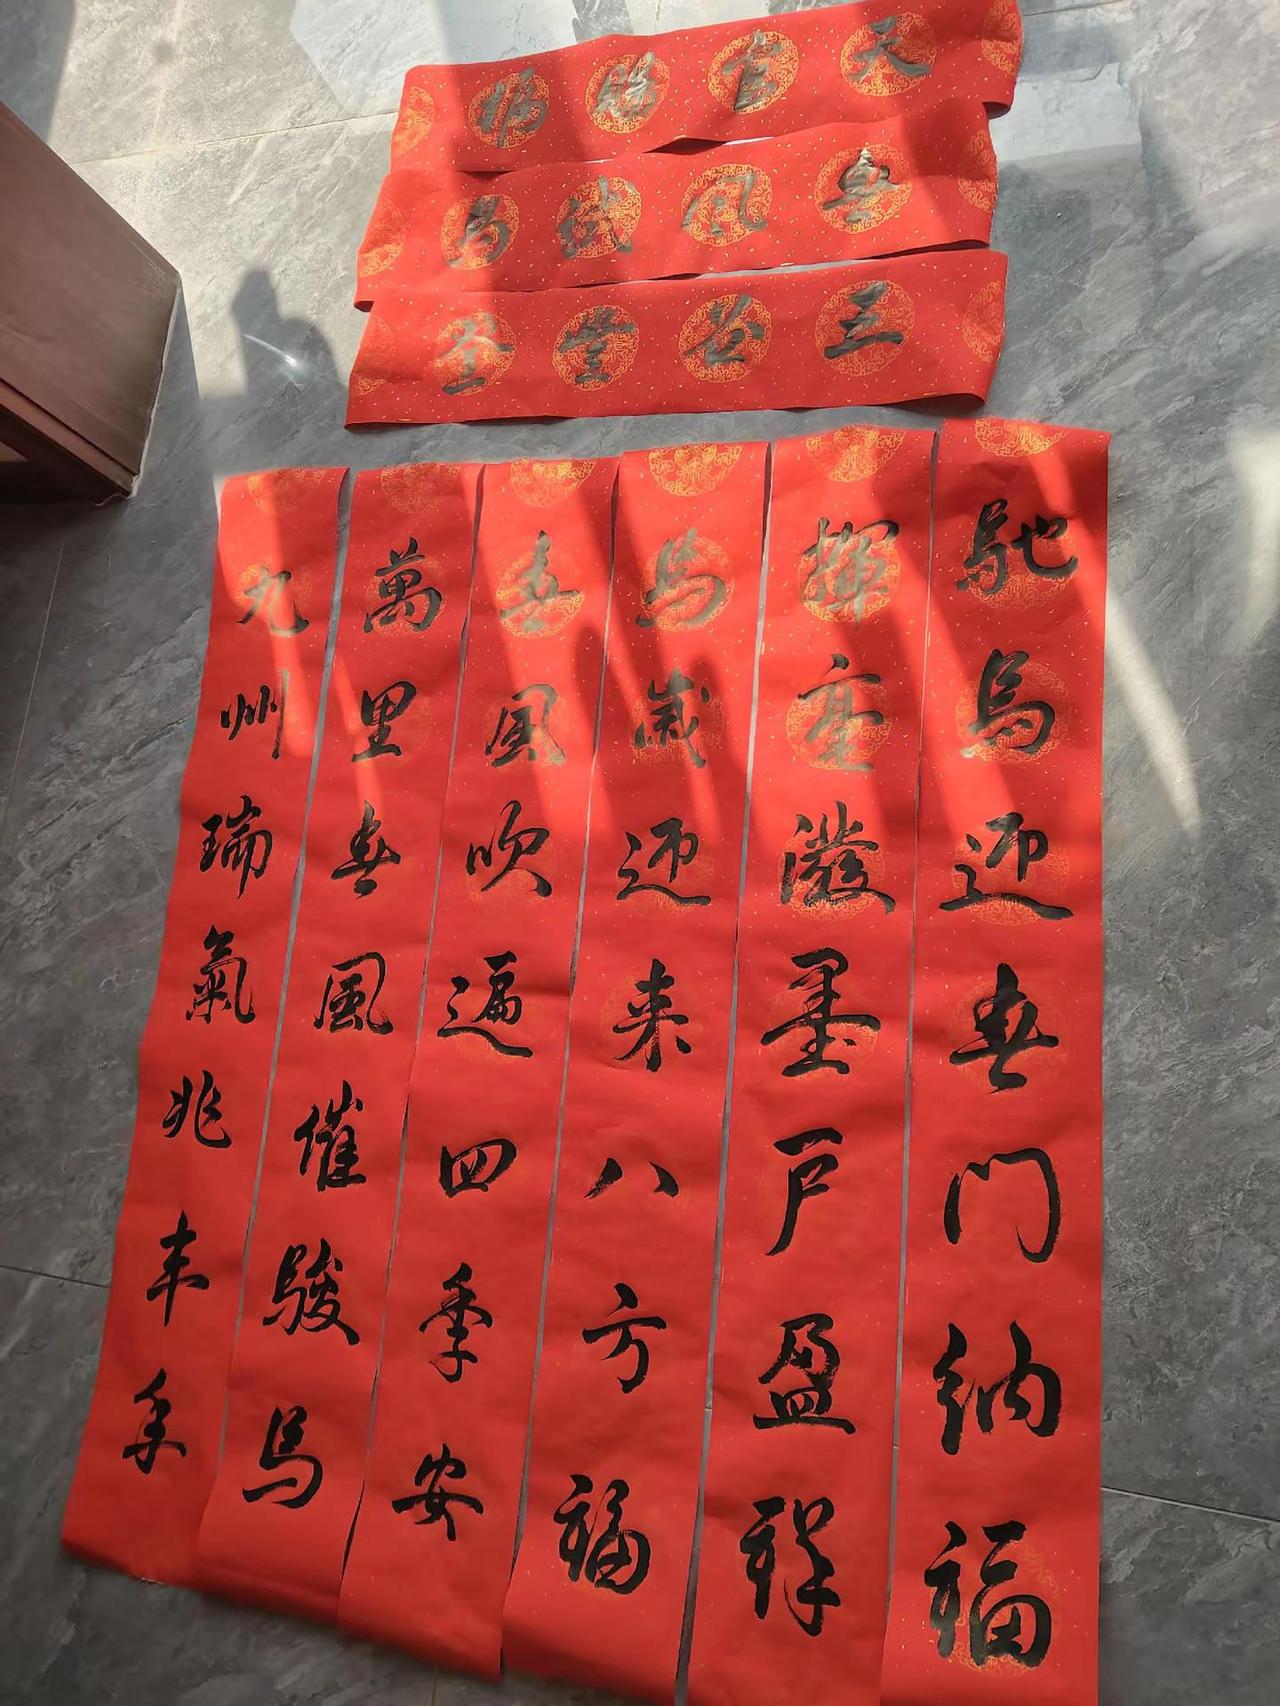 天官賜福
春风試馬
五谷豐登
馳馬迎春门纳福
揮毫潑墨户盈祥
馬歲迎来八方福
春風吹遍四季安
萬里春風催駿馬
九州瑞氣兆丰年